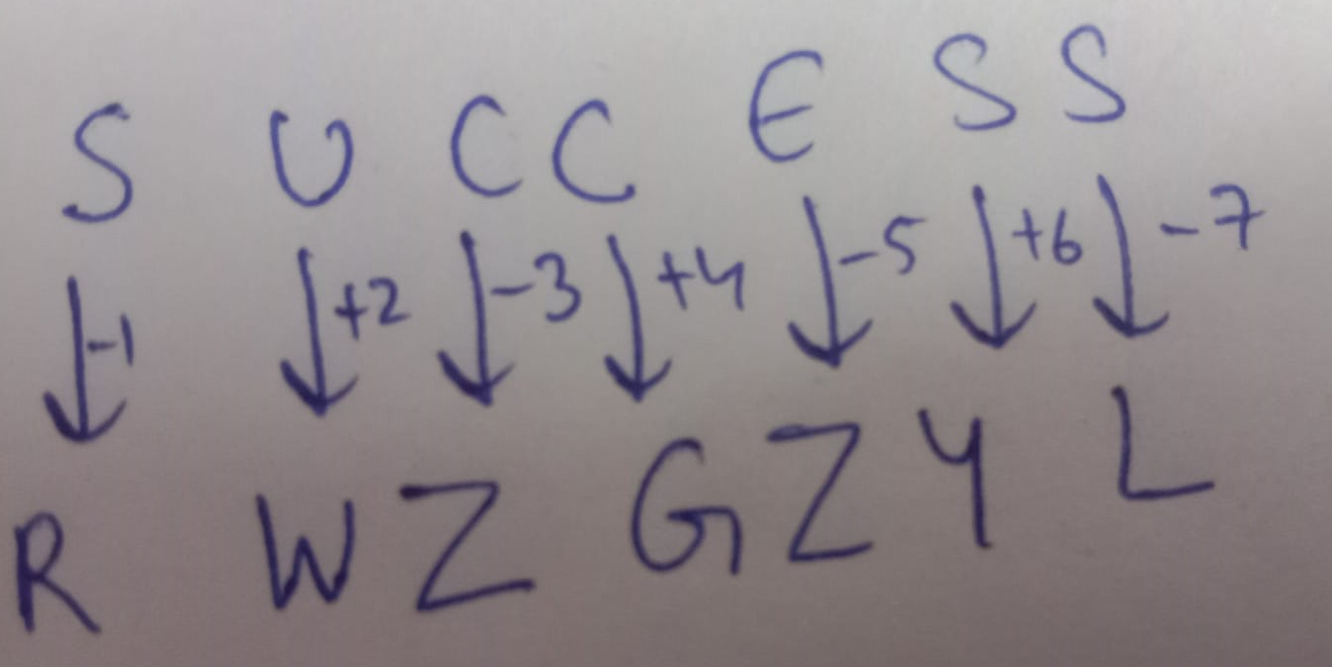 S U C C E S S
-1 +2 -3 +4 -5 +6 -7
R W Z G Z Y L